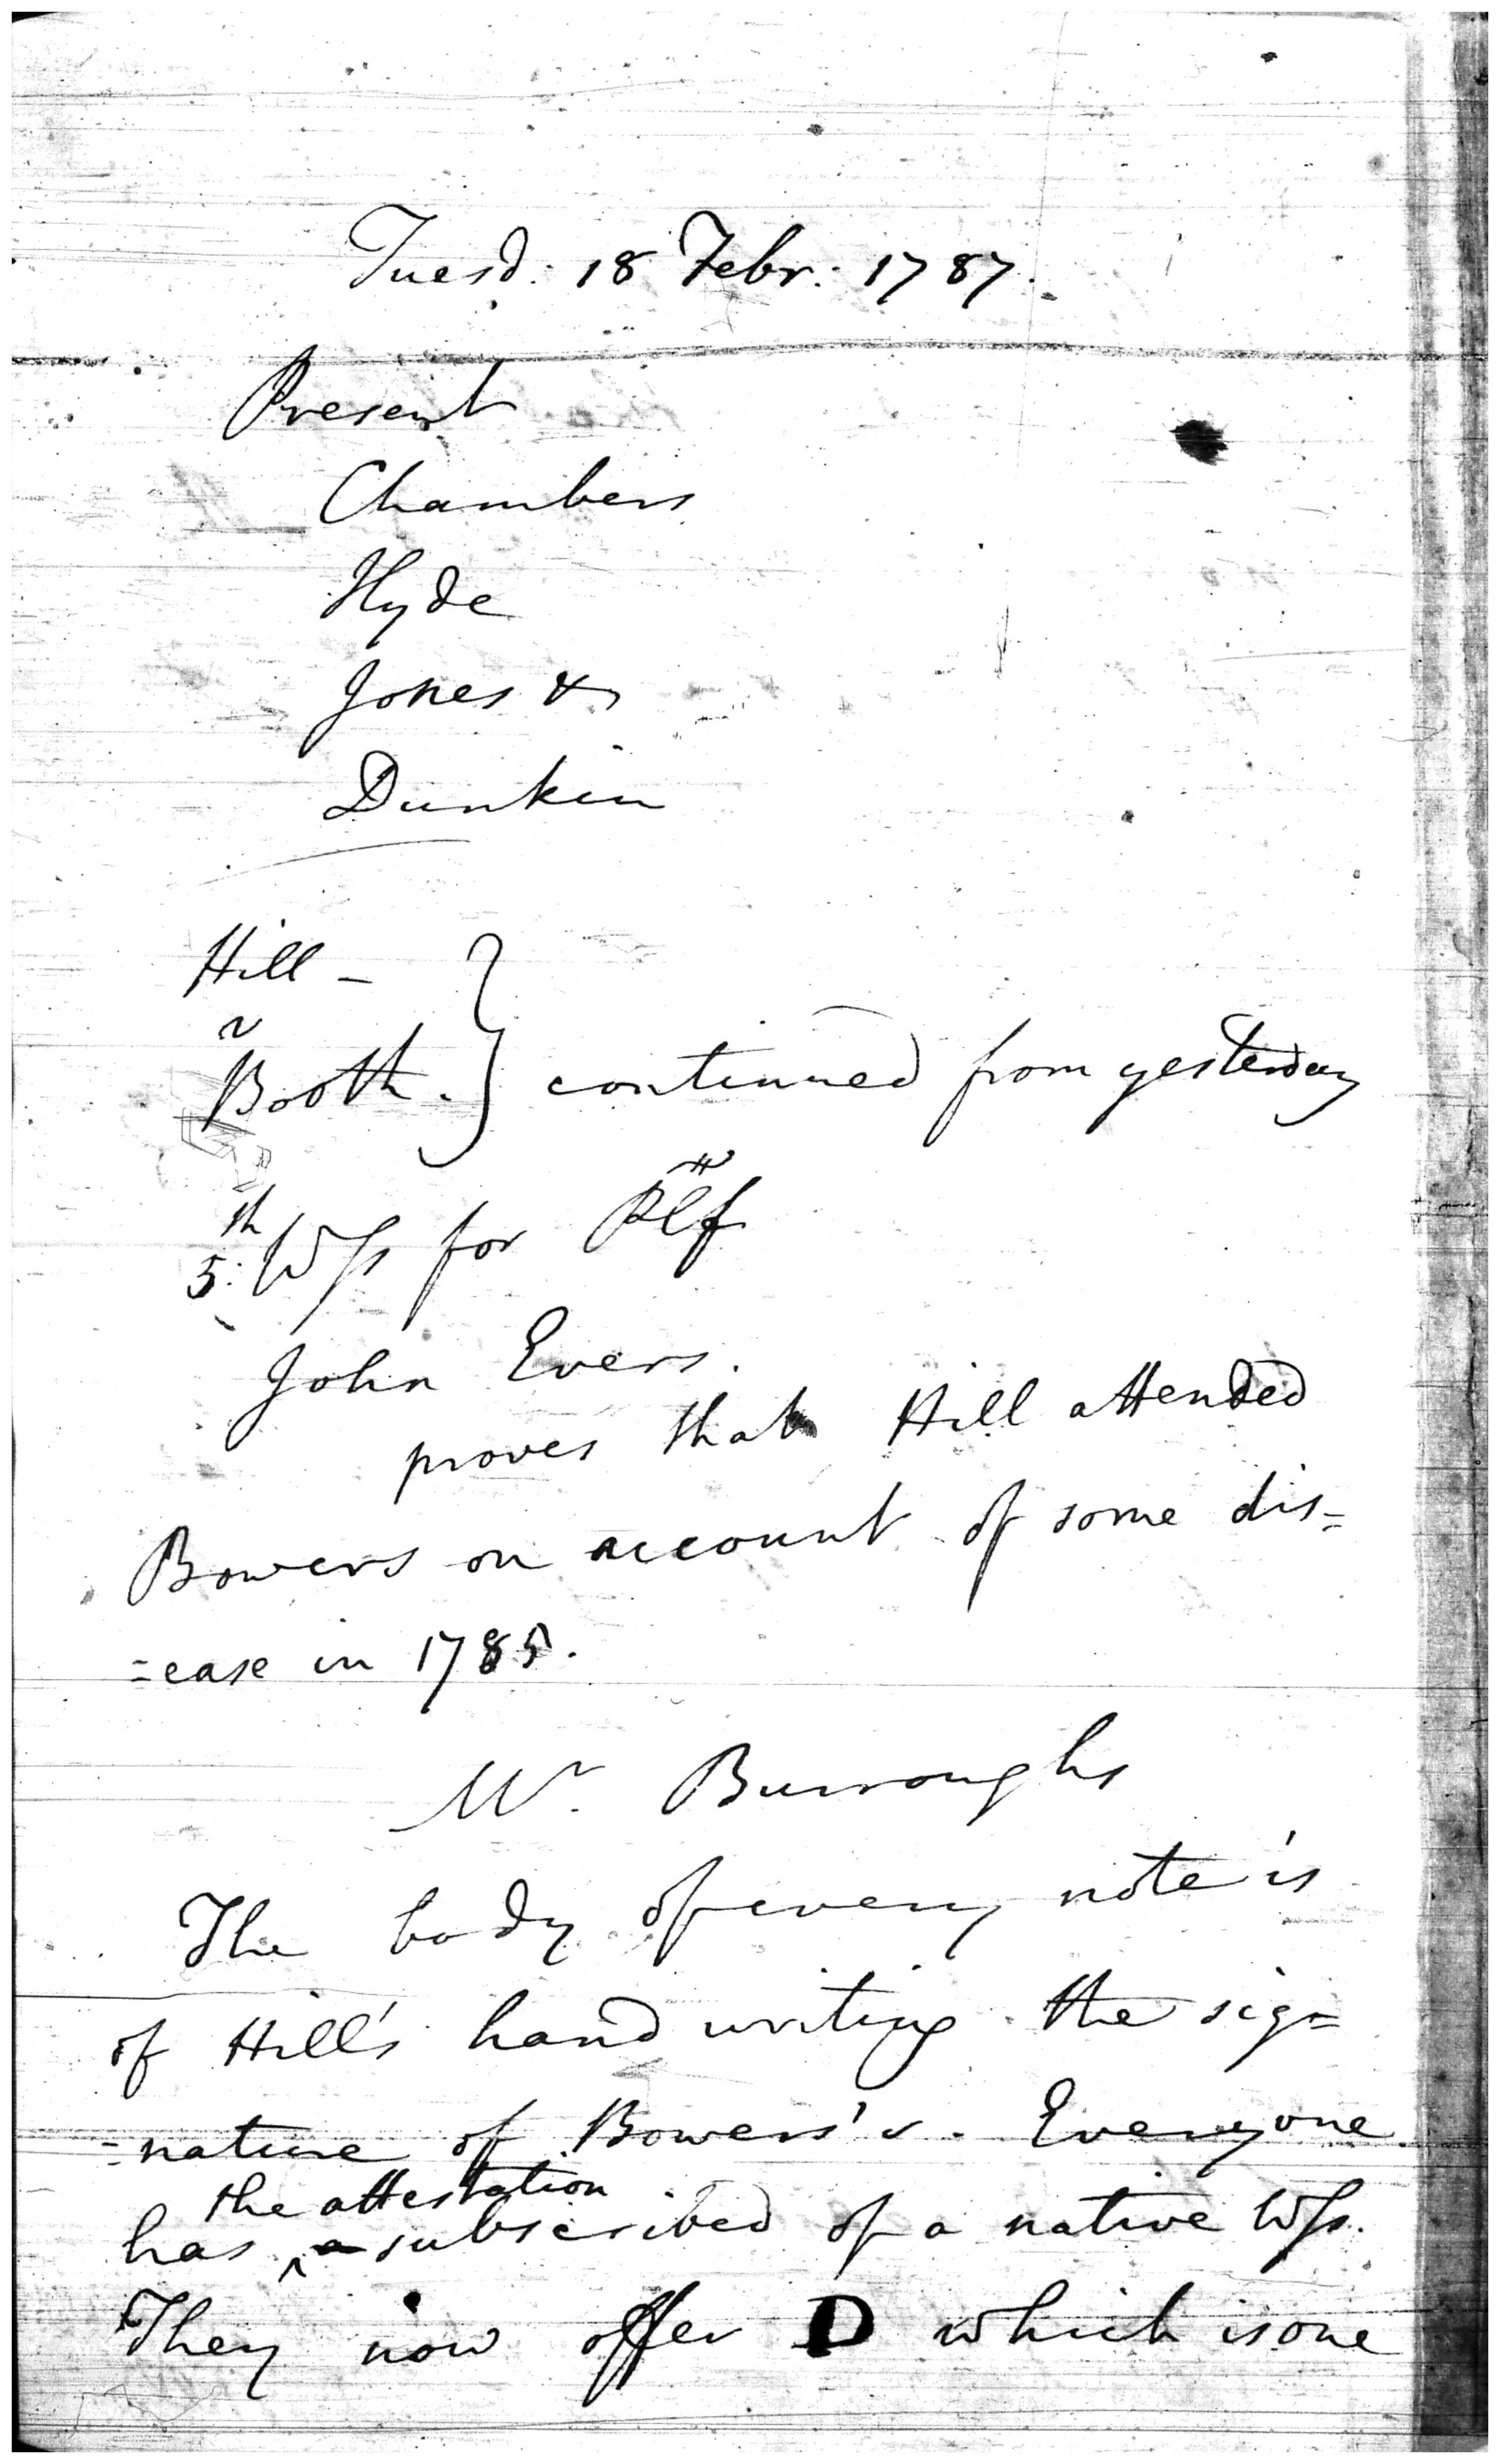 Tuesd: 18 Febr: 1787.
Present
Chambers
Hyde
Jones &
Dunkin
Hill -
v
Booth. } continued from yesterday
5:th Wss for Plff
John Evers.
proves that Hill attended
Bowers on account of some dis=
=ease in 1785.
Mr. Burroughs
The body of every note is
of Hill's hand writing the sig=
=nature of Bowers's. Every one
the attestation
has subscribed of a native Wss.
They now offer D which is one